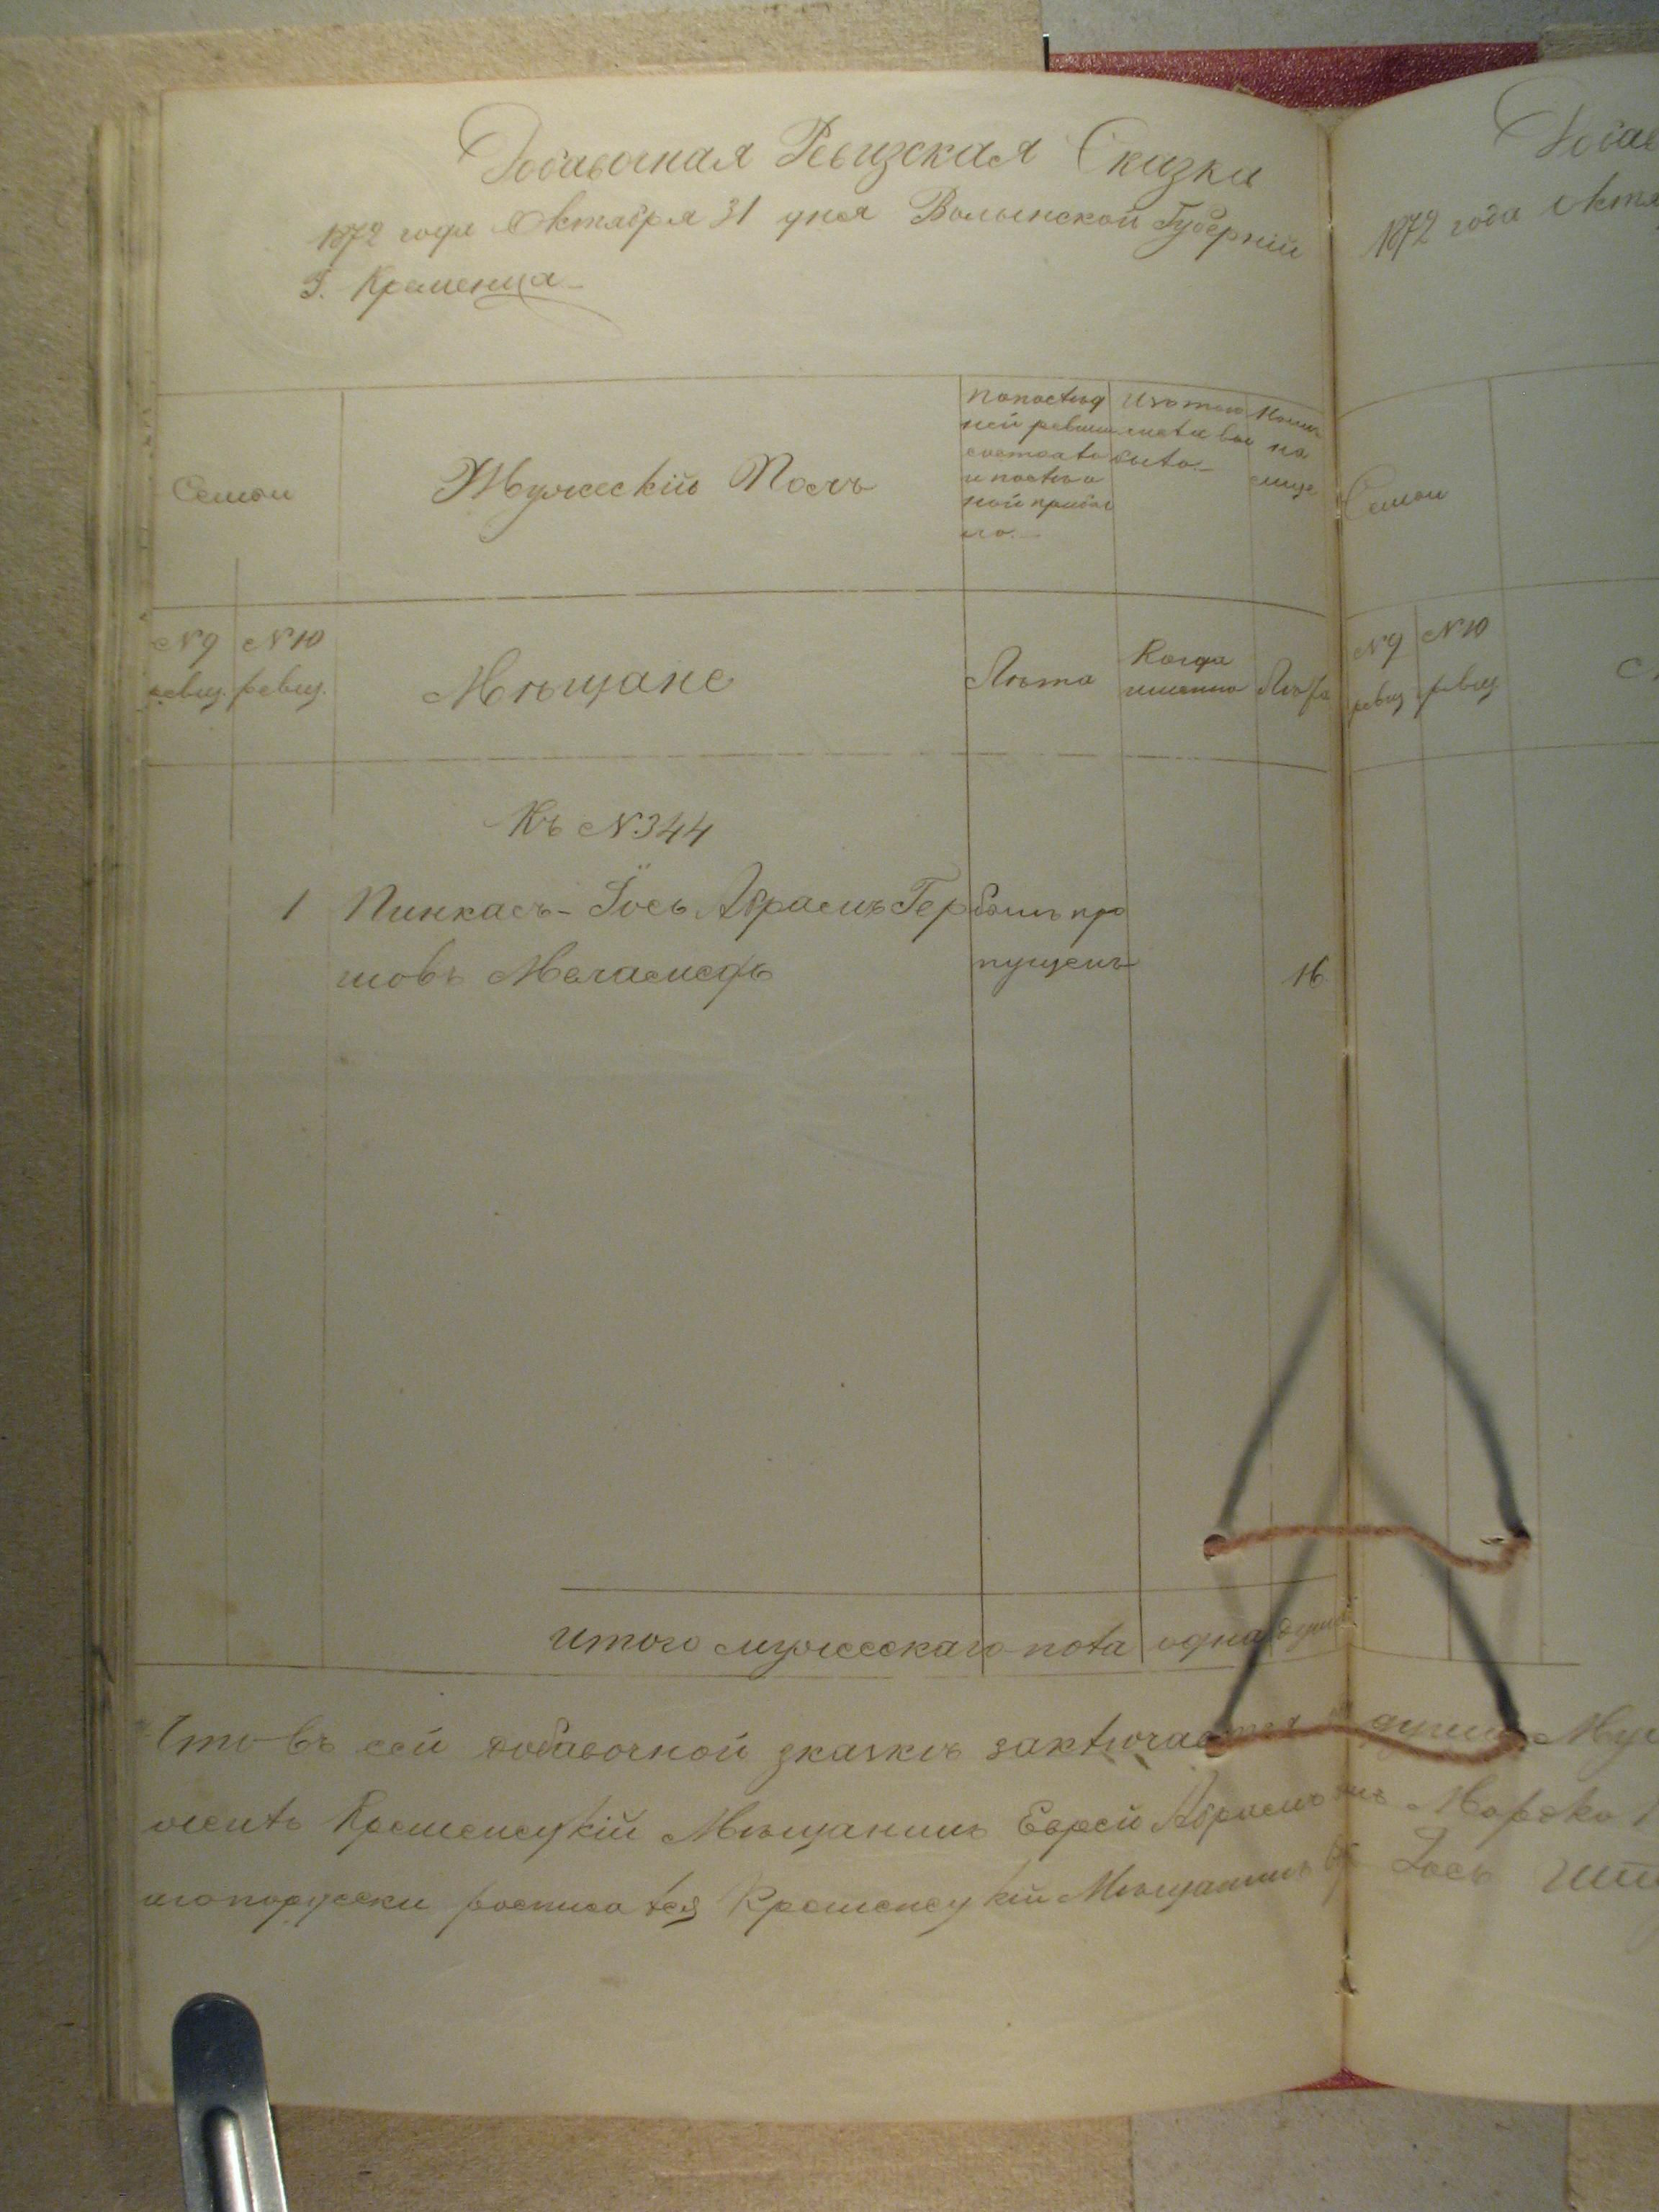 Добавочная Ревизская Сказка
1872 года Октября 31 дня Волынской Губерніи
Г. Кременца
Семьи
Мужескій Полъ
По послѣд
ней ревизіи
состояло
и послѣ о
ной прибы
ло.
Изъ того
числа вы
было.
Нынѣ
на
лице
№ 9
ревиз.
№ 10
ревиз.
Мѣщане
Лѣта
Когда
именно
Лѣта
Къ № 344
1 Пинкасъ-Іось Абрамъ Гер
шовъ Меламедъ
былъ про
пущенъ
16
Итого мужескаго пола одна душа
Что въ сей добавочной зказкѣ заключается душа Муж
Кременецкій Мѣщанинъ Еврей Абрамъ
росписался Кременецкій Мѣщанинъ Іось
Добав
1872 года Октя
Семьи
№ 9
ревиз
№ 10
ревиз